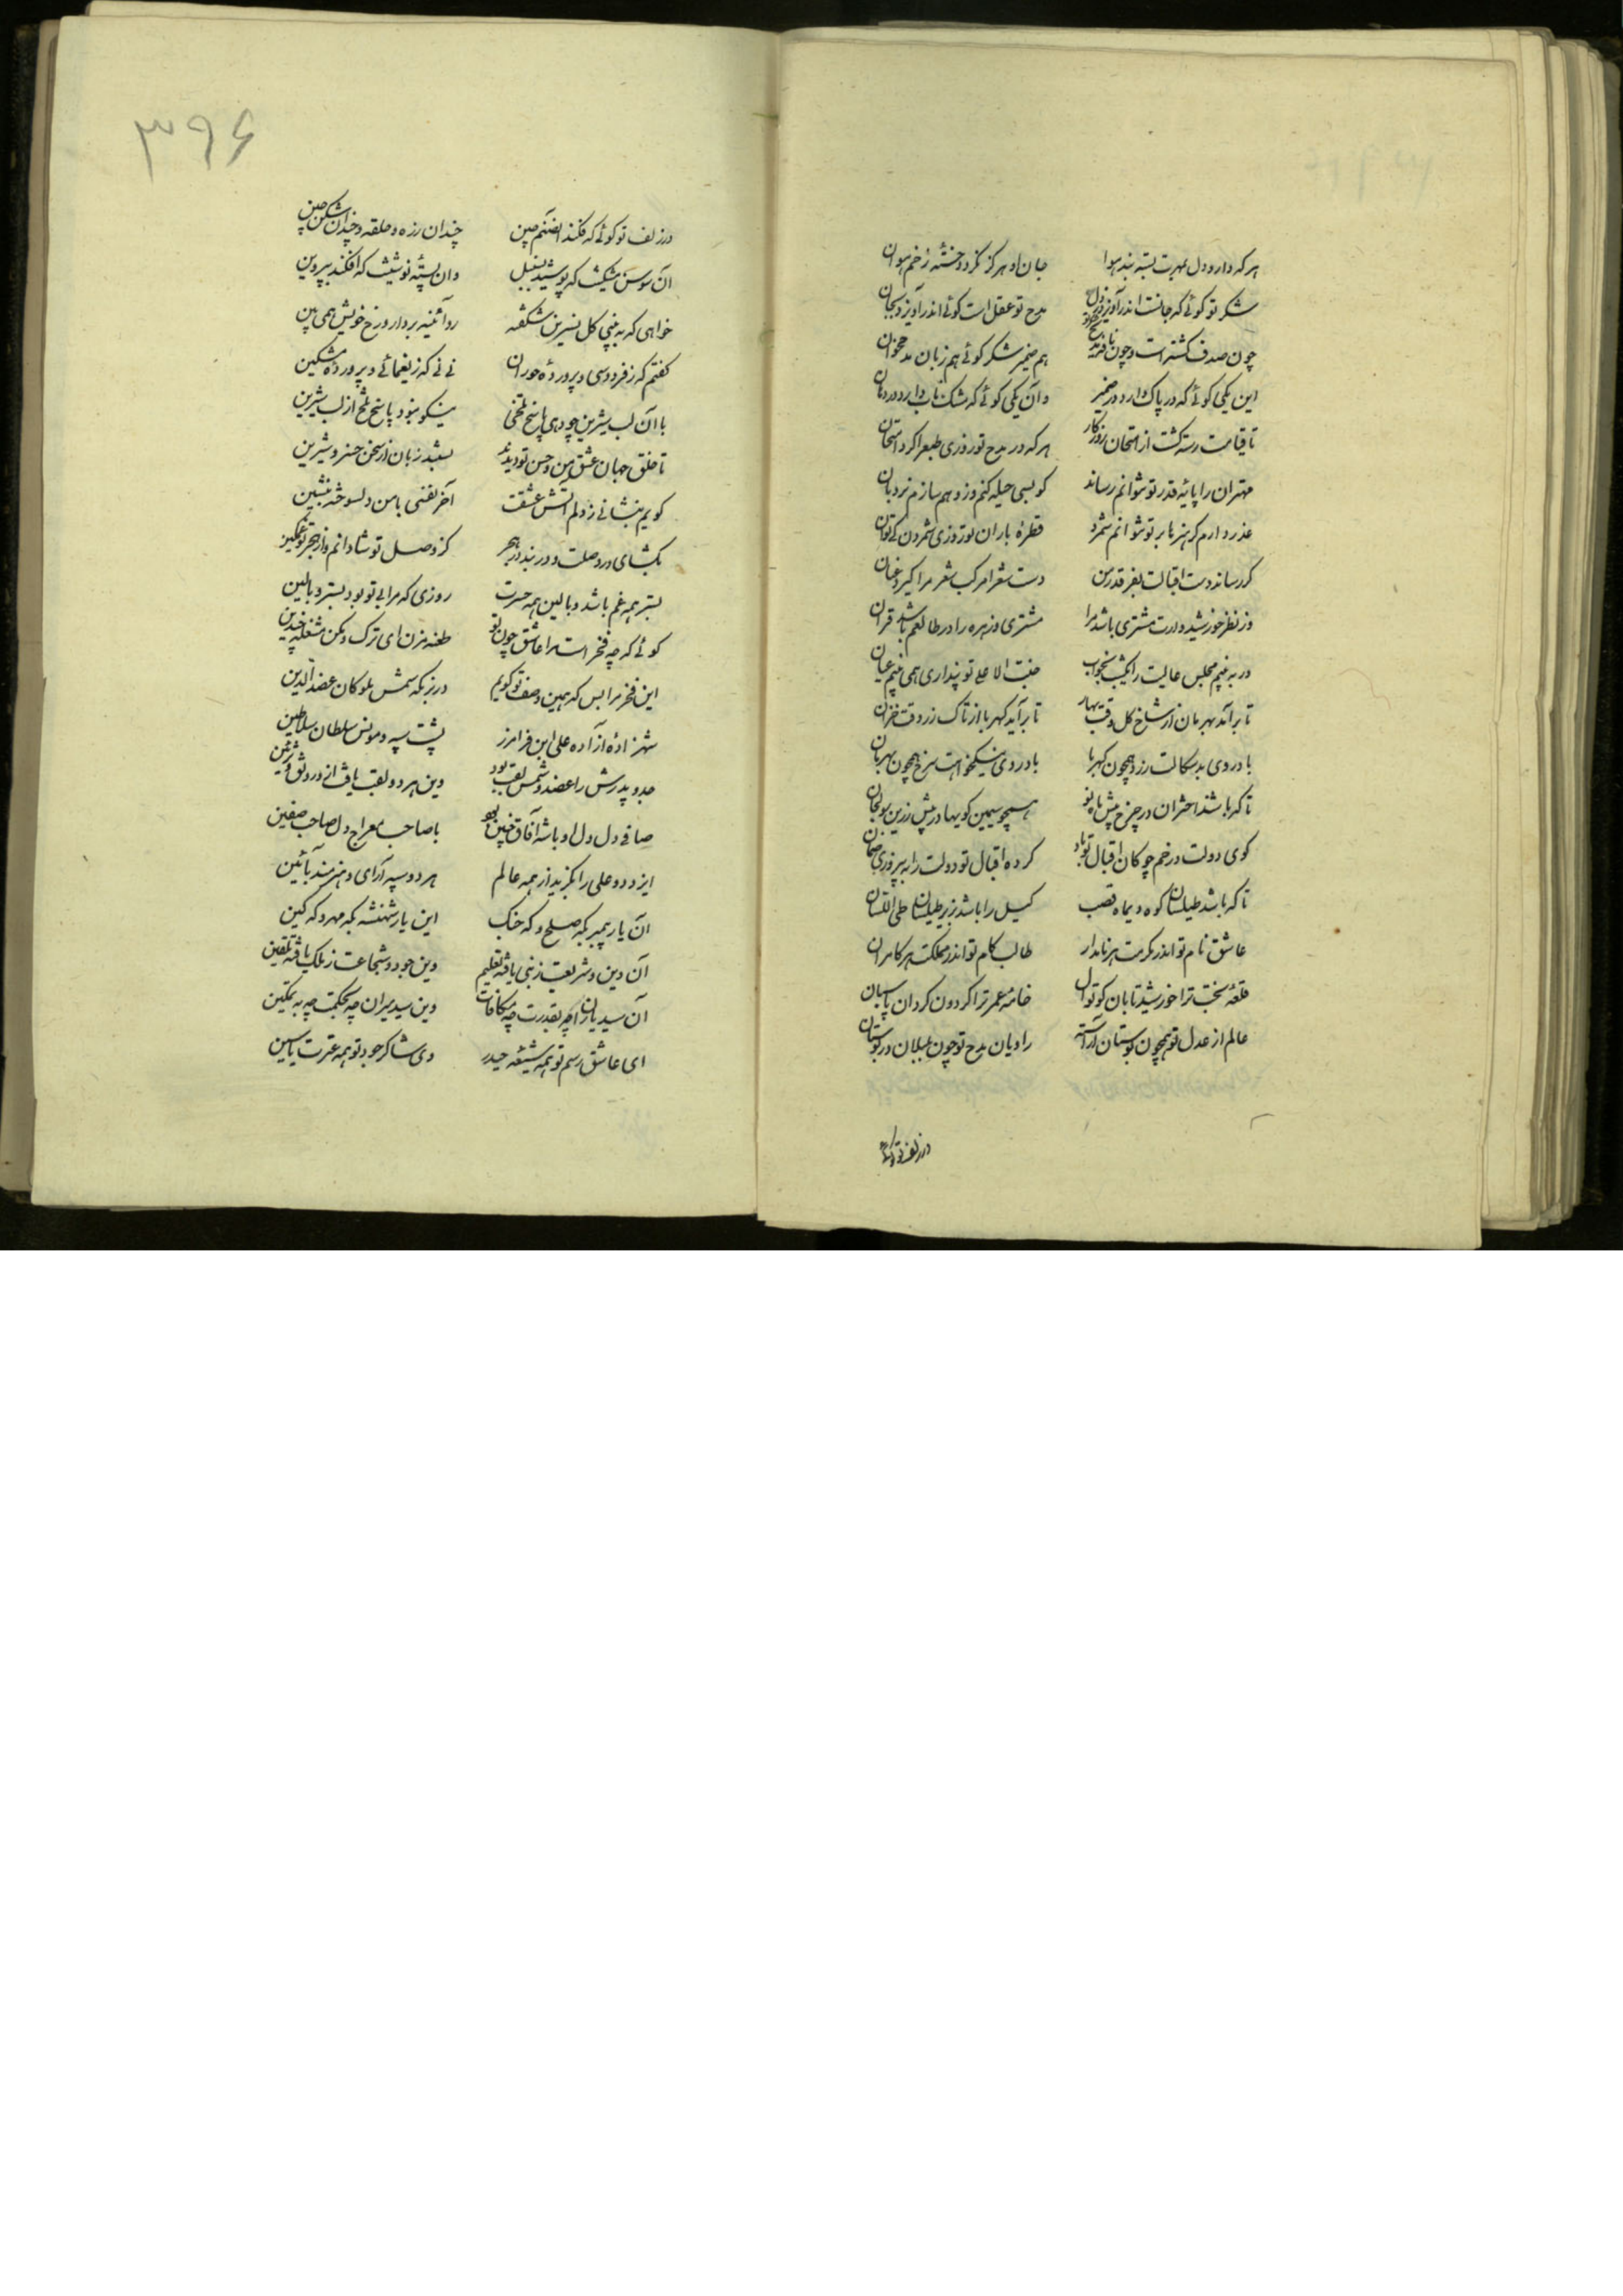 هرکه دارد دل بمهرت بسته بند هوا جان او هرگز نگردد خسته زخم هوان
شکر تو گوئی که جانست اندر آویزد بدل مدح تو عقل است گوئی اندر آویزد بجان
چون صدف گشتست و چون نافه هم ضمیر شکر گوی هم زبان مدح خوان
این یکی گوئی که در پاک دارد در ضمیر وان یکی گوئی که مشک ناب دارد در دهان
تا قیامت رسته گشت از امتحان روزگار هرکه در مدح تو روزی طبع را کرد امتحان
مهتران را پایه قدر تو نتوانم رساند گو بسی حیله کنم وز وهم سازم نردبان
عذر دارم گر هنرها بر تو نتوانم شمرد قطرهٔ باران نوروزی شمردن کی توان
گر رساند دست اقبالت بفرقد فرق من دست شعرا مرکب شعر مرا گیرد عنان
ور نظر خورشید وارت مشتری باشد مرا مشتری و زهره را در طالعم باشد قران
ور به بینم مجلس عالیت را یکشب بخواب جنت الاعلی تو پنداری همی بینم عیان
تا برآید بهرمان از شاخ گل وقت بهار تا برآید کهربا از تاک رز وقت خزان
باد روی بدسگالت زرد همچون کهربا باد روی نیکخواهت سرخ همچون بهرمان
تا که باشد اختران در چرخ پیش ماه نو همچو سیمین گویها در پیش زرین صولجان
گوی دولت در خم چوگان اقبال تو باد کرده اقبال تو دولت را به پیروزی ضمان
تا که باشد طیلسان کوه دیماه قصب گیل را باشد بزیر طیلسان طی لسان
عاشق نام تو اندر مکرمت هر نامدار طالب کام تو اندر مملکت هر کامران
قلعهٔ بخت ترا خورشید تابان کوتوال خانهٔ عمر ترا گردون گردان پاسبان
عالم از عدل تو همچون بوستان آراسته راویان مدح تو چون بلبلان در بوستان
در زلف تو گوئی
۳۹۶
در زلف تو گوئی که فکند ای صنم چین چندان زره و حلقه و چندان شکن و چین
آن سوسن مشکینت که پوشید بسنبل وان پستهٔ نوشینت که افکند بپروین
خواهی که به بینی گل نسرین شکفته رو آئینه بردار و رخ خویش همی بین
گفتم که ز فردوسی و پروردهٔ حوران نی نی که ز یغمائی و پروردهٔ مشکین
با آن لب شیرین چو دهی پاسخ تلخی نیکو نبود پاسخ تلخ از لب شیرین
تا خلق جهان عشق من و حسن تو دیدند بستند زبان از سخن خسرو شیرین
گویم بنشانی ز دلم آتش عشقت آخر نفسی با من دلسوخته بنشین
بگشای در وصلت و در بند در هجر کز وصل تو شادانم و از هجر تو غمگین
بستر همه غم باشد و بالین همه حسرت روزی که مرا بی تو بود بستر و بالین
گوئی که چه فخر است مرا عاشق چون تو طعنه مزن ای ترک و مکن مشغله چندین
این فخر مرا بس که همین وصف تو گویم در بزمگه شمس ملوکان عضدالدین
شهزادهٔ آزاده علی ابن فرامرز پشت سپه و مونس سلطان سلاطین
جد و پدرش را عضد و شمس لقب بود وین هر دو لقب یافت
صافی دل دل او با شه آفاق چنین بود با صاحب معراج دل صاحب صفین
ایزد دو علی را بگزید از همه عالم هر دو سپه آرای و هنرمند بآئین
آن یار پیمبر بگه صلح و گه جنگ این یار شهنشه بگه مهر و گه کین
آن دین و شریعت ز نبی یافته تعلیم وین جود و شجاعت ز ملک یافته تلقین
آن سید یاران چه بقدرت چه مکافات وین سید میران چه بحکمت چه به تمکین
ای عاشق رسم تو همه شیعه حیدر وی شاکر جود تو همه عترت یاسین